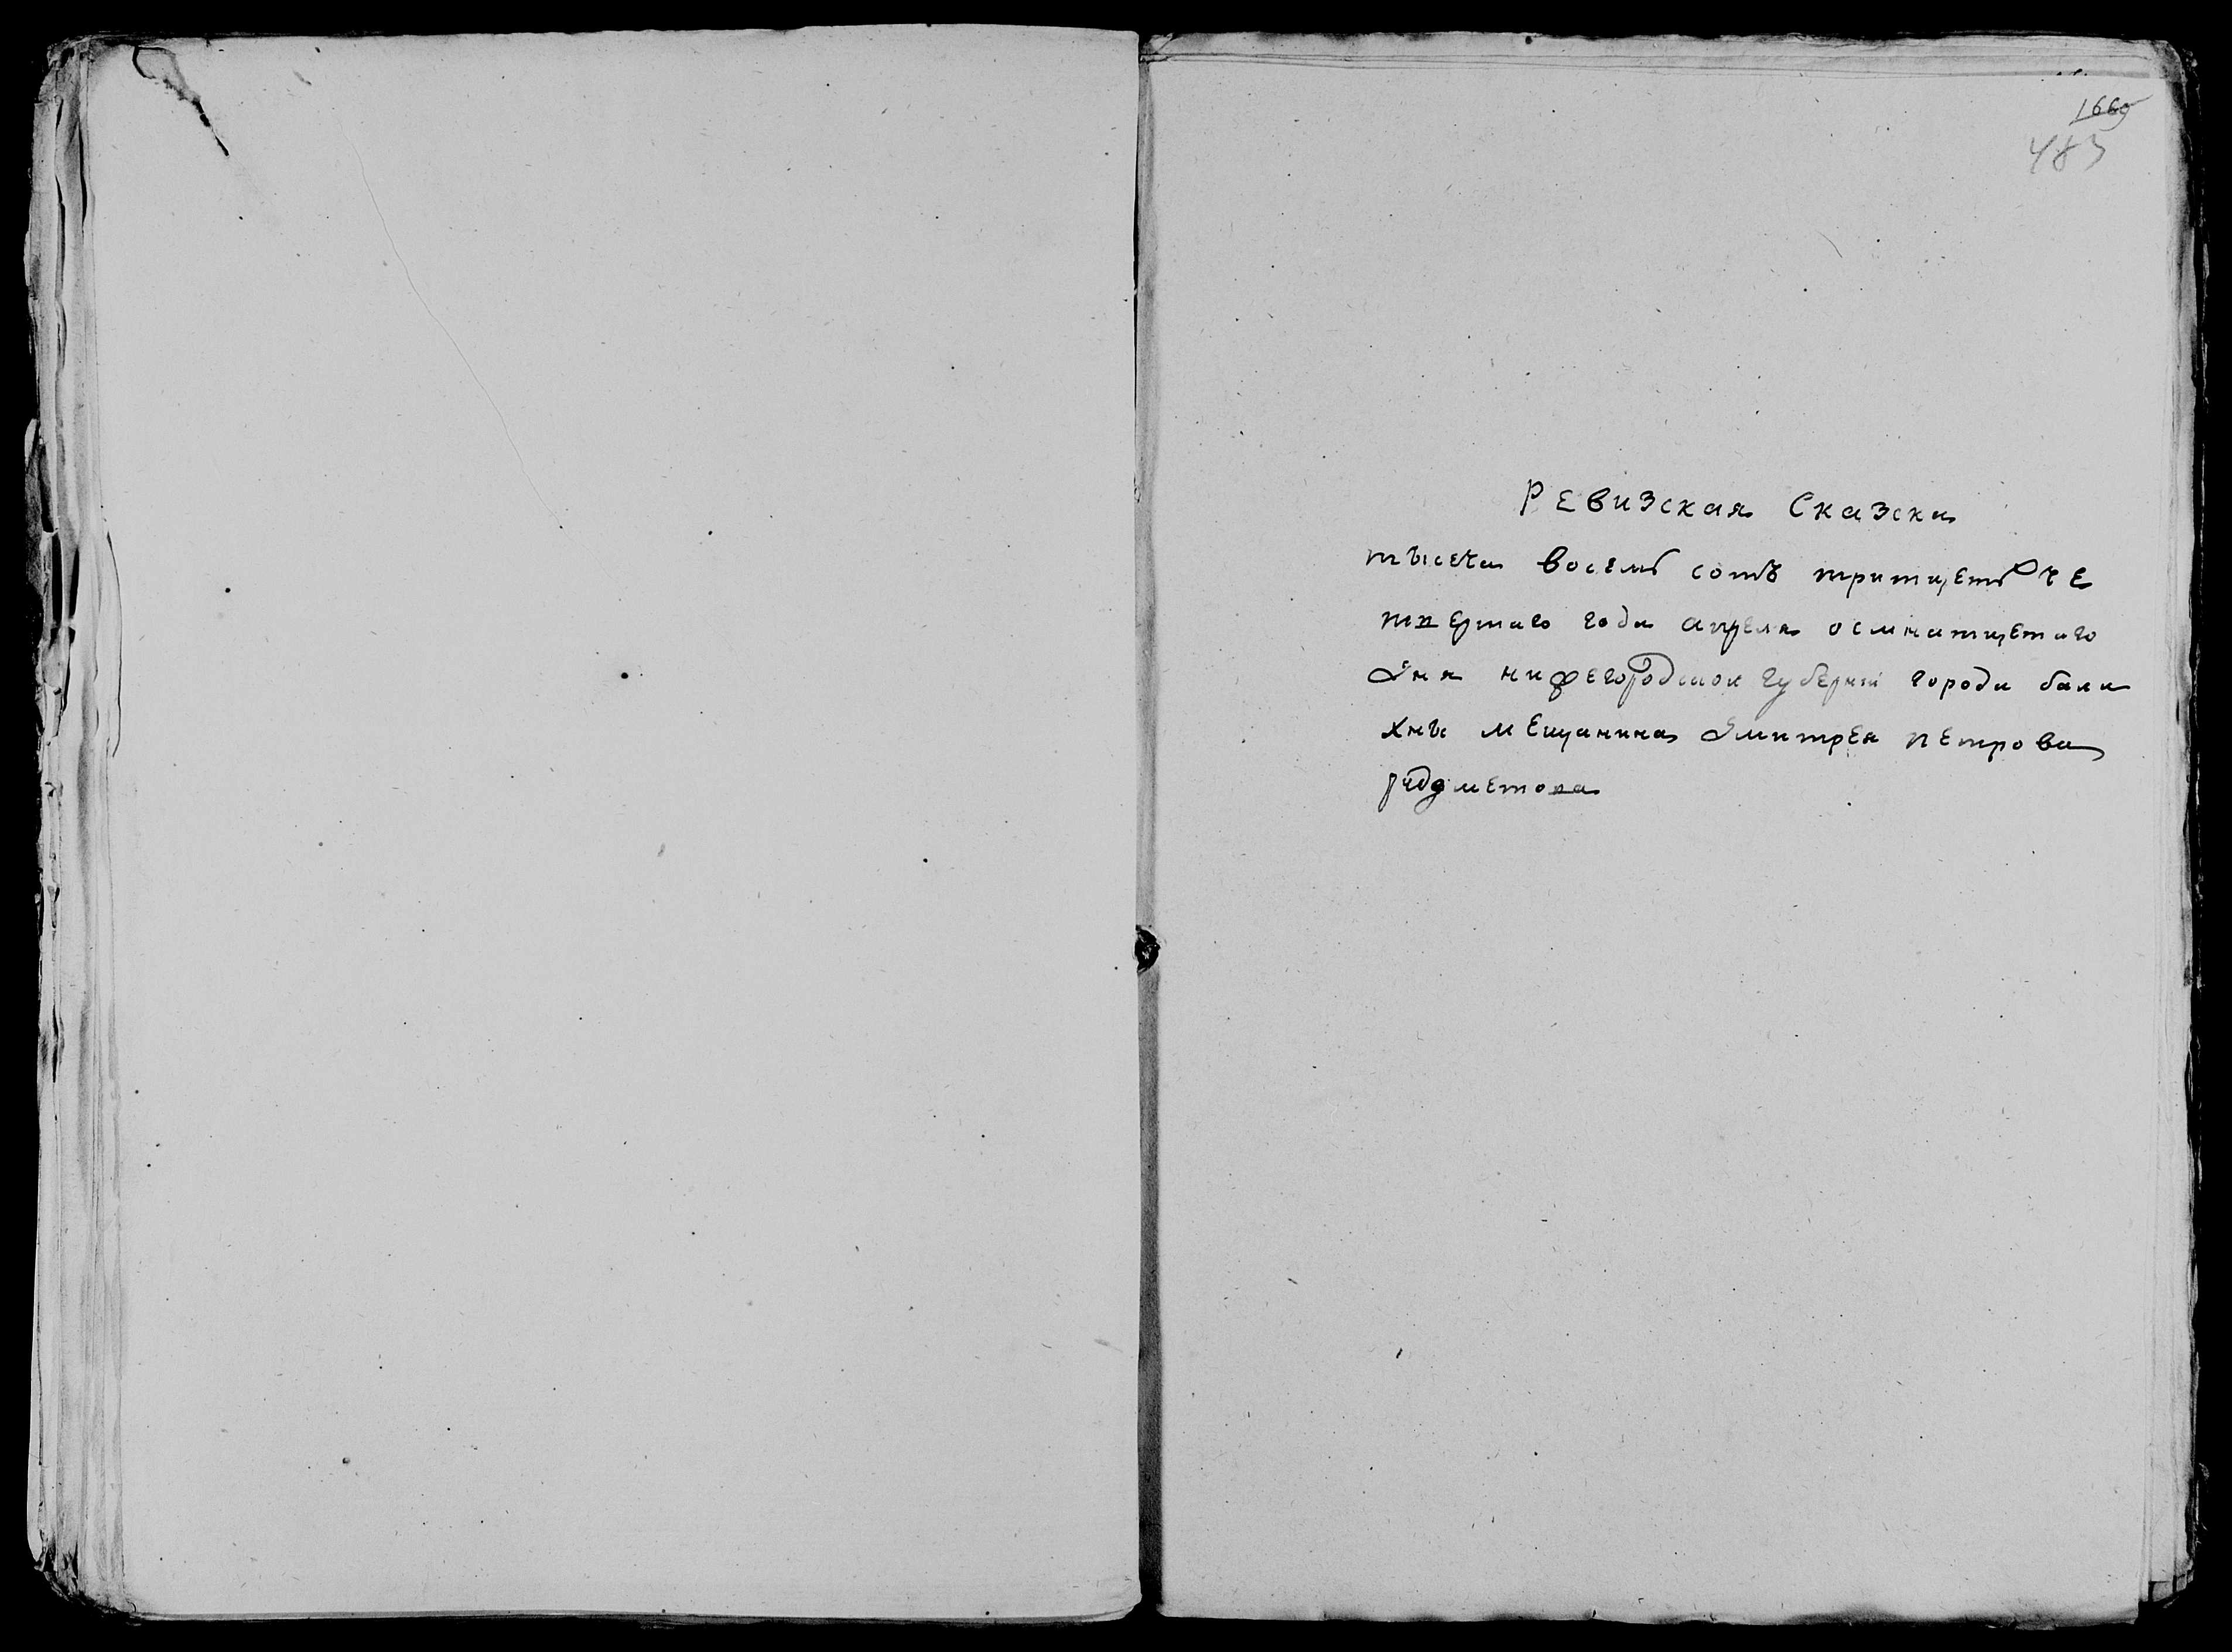 1660
483
Ревизская Сказска
тысеча восемь сотъ тритцеть че
твертаго года апреля осмнатцетаго
дня нижегородской губернии города бала
хны мещанина дмитрея петрова